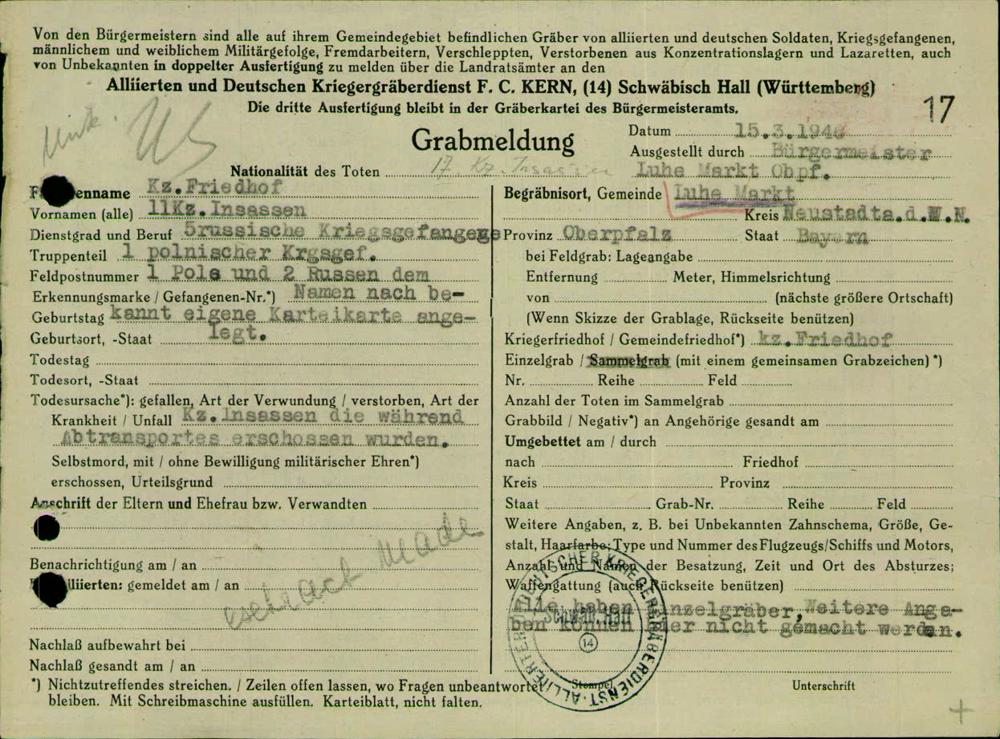 Von den Bürgermeistern sind alle auf ihrem Gemeindegebiet befindlichen Gräber von alliierten und deutschen Soldaten, Kriegsgefangenen,
männlichem und weiblichem Militärgefolge, Fremdarbeitern, Verschleppten, Verstorbenen aus Konzentrationslagern und Lazaretten, auch
von Unbekannten in doppelter Ausfertigung zu melden über die Landratsämter an den
Alliierten und Deutschen Kriegergräberdienst F. C. KERN, (14) Schwäbisch Hall (Württemberg)
Die dritte Ausfertigung bleibt in der Gräberkartei des Bürgermeisteramts.
17
Grabmeldung
Datum 15.3.1946
Ausgestellt durch Bürgermeister
Luhe Markt Obpf.
Nationalität des Toten 17. Kz. Insassen
enname Kz.Friedhof
Vornamen (alle) 11Kz.Insassen
Dienstgrad und Beruf 5russische Kriegsgefangene
Truppenteil 1 polnischer Krgsgef.
Feldpostnummer 1 Pole und 2 Russen dem
Erkennungsmarke / Gefangenen-Nr.*) Namen nach be-
Geburtstag kannt eigene Karteikarte ange-
Geburtsort, -Staat legt.
Todestag
Todesort, -Staat
Todesursache*): gefallen, Art der Verwundung / verstorben, Art der
Krankheit / Unfall Kz.Insassen die während
Abtransportes erschossen wurden.
Selbstmord, mit / ohne Bewilligung militärischer Ehren*)
erschossen, Urteilsgrund
Anschrift der Eltern und Ehefrau bzw. Verwandten
Benachrichtigung am / an
lliierten: gemeldet am / an
extract made
Nachlaß aufbewahrt bei
Nachlaß gesandt am / an
*) Nichtzutreffendes streichen. / Zeilen offen lassen, wo Fragen unbeantwortet
bleiben. Mit Schreibmaschine ausfüllen. Karteiblatt, nicht falten.
Begräbnisort, Gemeinde Luhe Markt
Kreis Neustadt a.d.W.N.
Provinz Oberpfalz Staat Bayern
bei Feldgrab: Lageangabe
Entfernung Meter, Himmelsrichtung
von (nächste größere Ortschaft)
(Wenn Skizze der Grablage, Rückseite benützen)
Kriegerfriedhof / Gemeindefriedhof*) kz.Friedhof
Einzelgrab / Sammelgrab (mit einem gemeinsamen Grabzeichen)*)
Nr. Reihe Feld
Anzahl der Toten im Sammelgrab
Grabbild / Negativ*) an Angehörige gesandt am
Umgebettet am / durch
nach Friedhof
Kreis Provinz
Staat Grab-Nr. Reihe Feld
Weitere Angaben, z. B. bei Unbekannten Zahnschema, Größe, Ge-
stalt, Haarfarbe; Type und Nummer des Flugzeugs/Schiffs und Motors,
Anzahl und Namen der Besatzung, Zeit und Ort des Absturzes;
Waffengattung (auch Rückseite benützen)
Alle haben Einzelgräber,Weitere Anga-
ben können hier nicht gemacht werden.
ALLIIERTER DEUTSCHER KRIEGERGRÄBERDIENST
Schwäb. Hall
14
Stempel
Unterschrift